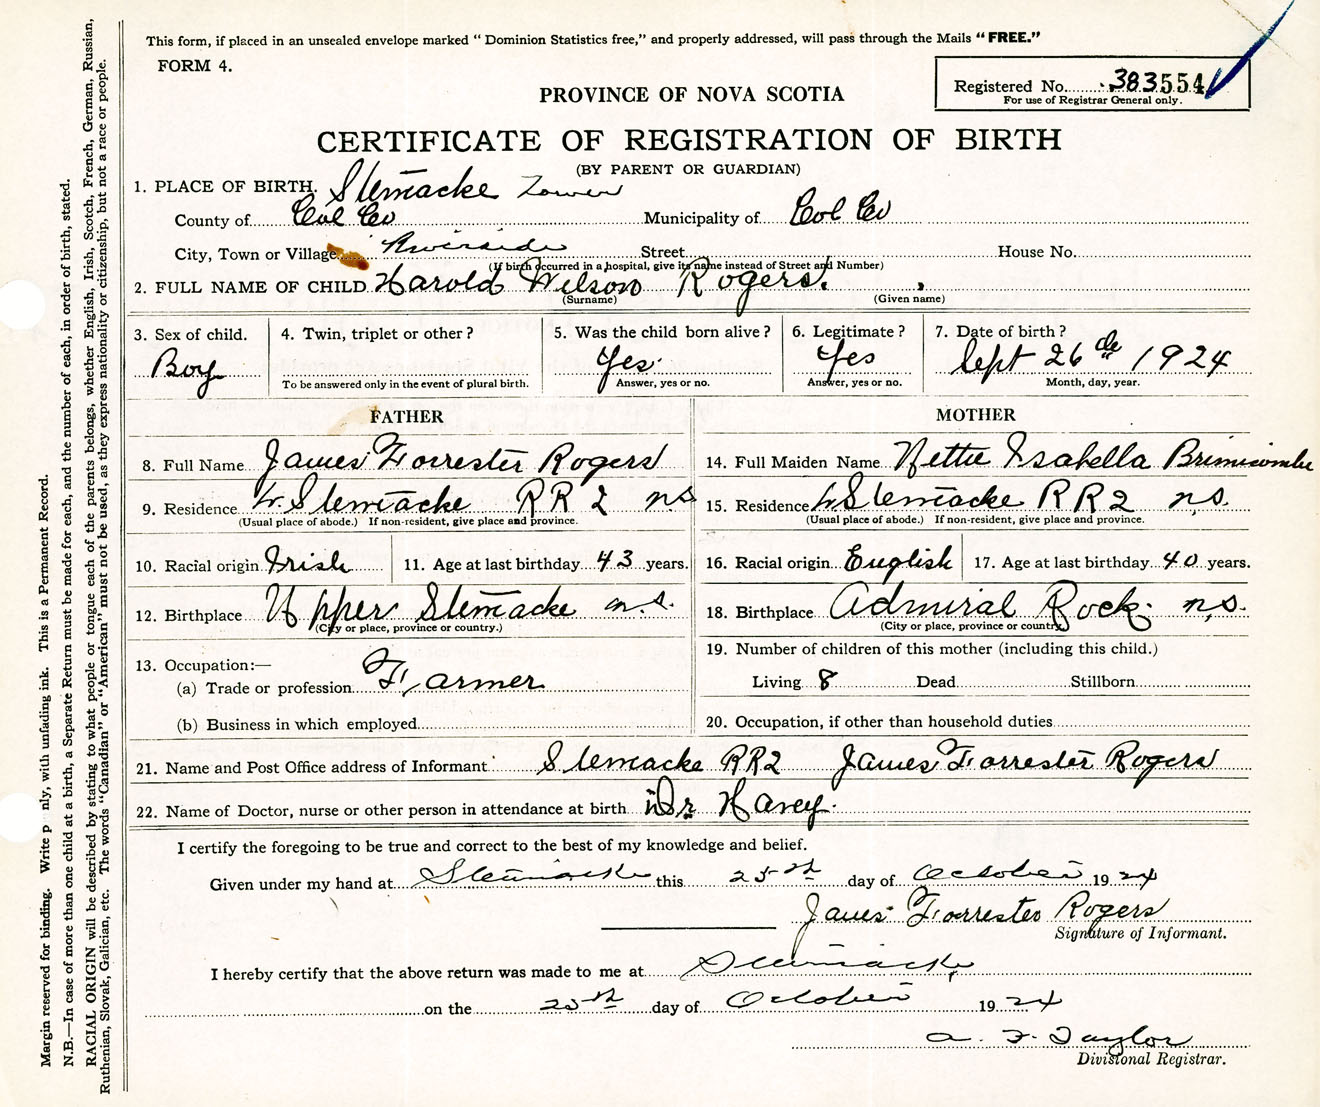 This form, if placed in an unsealed envelope marked “ Dominion Statistics free,” and properly addressed, will pass through the Mails “FREE.”
FORM 4.
Registered No. 383554
For use of Registrar General only.
PROVINCE OF NOVA SCOTIA
CERTIFICATE OF REGISTRATION OF BIRTH
(BY PARENT OR GUARDIAN)
1. PLACE OF BIRTH. Stewiacke Lower
County of Col Co Municipality of Col Co
City, Town or Village Riverside Street House No.
(If birth occurred in a hospital, give its name instead of Street and Number)
2. FULL NAME OF CHILD Harold Wilson Rogers.
(Surname) (Given name)
3. Sex of child. 4. Twin, triplet or other ? 5. Was the child born alive ? 6. Legitimate ? 7. Date of birth ?
Boy Yes Yes Sept 26th 1924
To be answered only in the event of plural birth. Answer, yes or no. Answer, yes or no. Month, day, year.
FATHER MOTHER
8. Full Name James Forrester Rogers 14. Full Maiden Name Nettie Isabella Brimicombe
9. Residence W. Stewiacke RR 2 n.s. 15. Residence W Stewiacke RR2 n.s.
(Usual place of abode.) If non-resident, give place and province. (Usual place of abode.) If non-resident, give place and province.
10. Racial origin Irish 11. Age at last birthday 43 years. 16. Racial origin English 17. Age at last birthday 40 years.
12. Birthplace Upper Stewiacke n.s. 18. Birthplace Admiral Rock. n.s.
(City or place, province or country.) (City or place, province or country.)
13. Occupation:— 19. Number of children of this mother (including this child.)
(a) Trade or profession Farmer Living 8 Dead Stillborn
(b) Business in which employed 20. Occupation, if other than household duties
21. Name and Post Office address of Informant Stewiacke RR2 James Forrester Rogers
22. Name of Doctor, nurse or other person in attendance at birth Dr Havey.
I certify the foregoing to be true and correct to the best of my knowledge and belief.
Given under my hand at Stewiacke this 25th day of October 1924
James Forrester Rogers
Signature of Informant.
I hereby certify that the above return was made to me at Stewiacke
on the 25th day of October 1924
A. F. Taylor
Divisional Registrar.
Margin reserved for binding. Write p nly, with unfading ink. This is a Permanent Record.
N.B.—In case of more than one child at a birth, a Separate Return must be made for each, and the number of each, in order of birth, stated.
RACIAL ORIGIN will be described by stating to what people or tongue each of the parents belongs, whether English, Irish, Scotch, French, German, Russian,
Ruthenian, Slovak, Galician, etc. The words “Canadian” or “American” must not be used, as they express nationality or citizenship, but not a race or people.